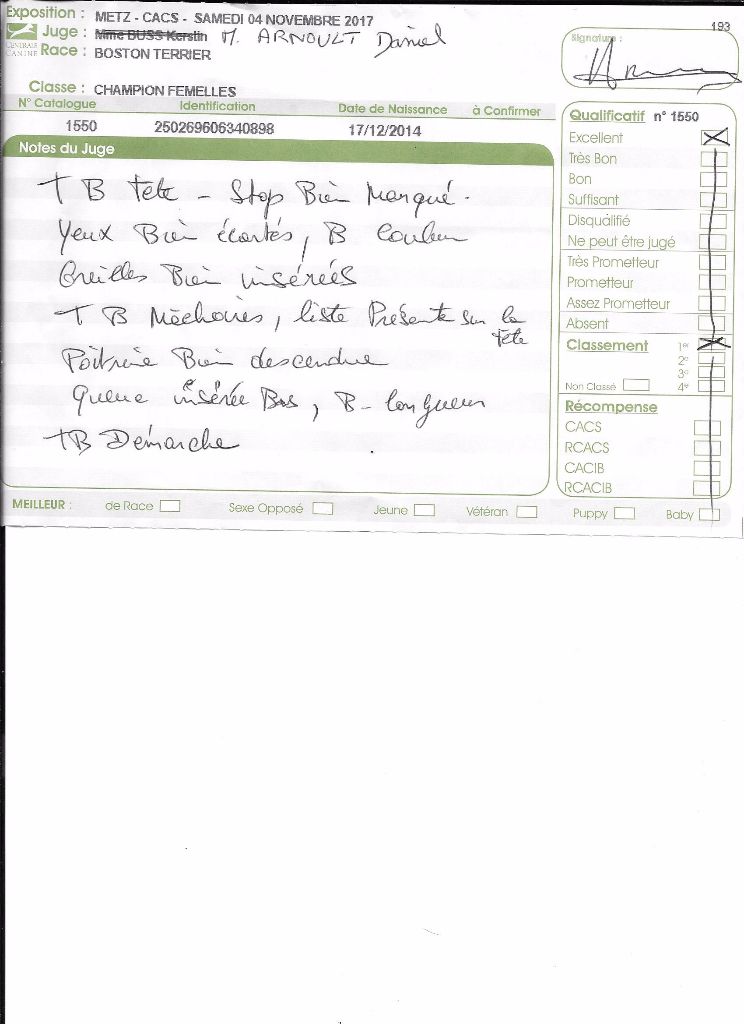 193
Exposition : METZ - CACS - SAMEDI 04 NOVEMBRE 2017
Juge : Mme BUSS Kerstin M. ARNOULT Daniel
CENTRALE CANINE
Race : BOSTON TERRIER
Classe : CHAMPION FEMELLES
N° Catalogue Identification Date de Naissance à Confirmer
1550 250269606340898 17/12/2014
Notes du Juge
T B Tête - Stop Bien Marqué.
Yeux Bien écartés, B Couleur
Oreilles Bien insérées
T B Mâchoires, liste Présente sur la
tête
Poitrine Bien descendue
Queue insérée Bas, B - longueur
TB Démarche
Signature :
Qualificatif n° 1550
Excellent
Très Bon
Bon
Suffisant
Disqualifié
Ne peut être jugé
Très Prometteur
Prometteur
Assez Prometteur
Absent
Classement 1er
2e
3e
Non Classé 4e
Récompense
CACS
RCACS
CACIB
RCACIB
MEILLEUR : de Race Sexe Opposé Jeune Vétéran Puppy Baby